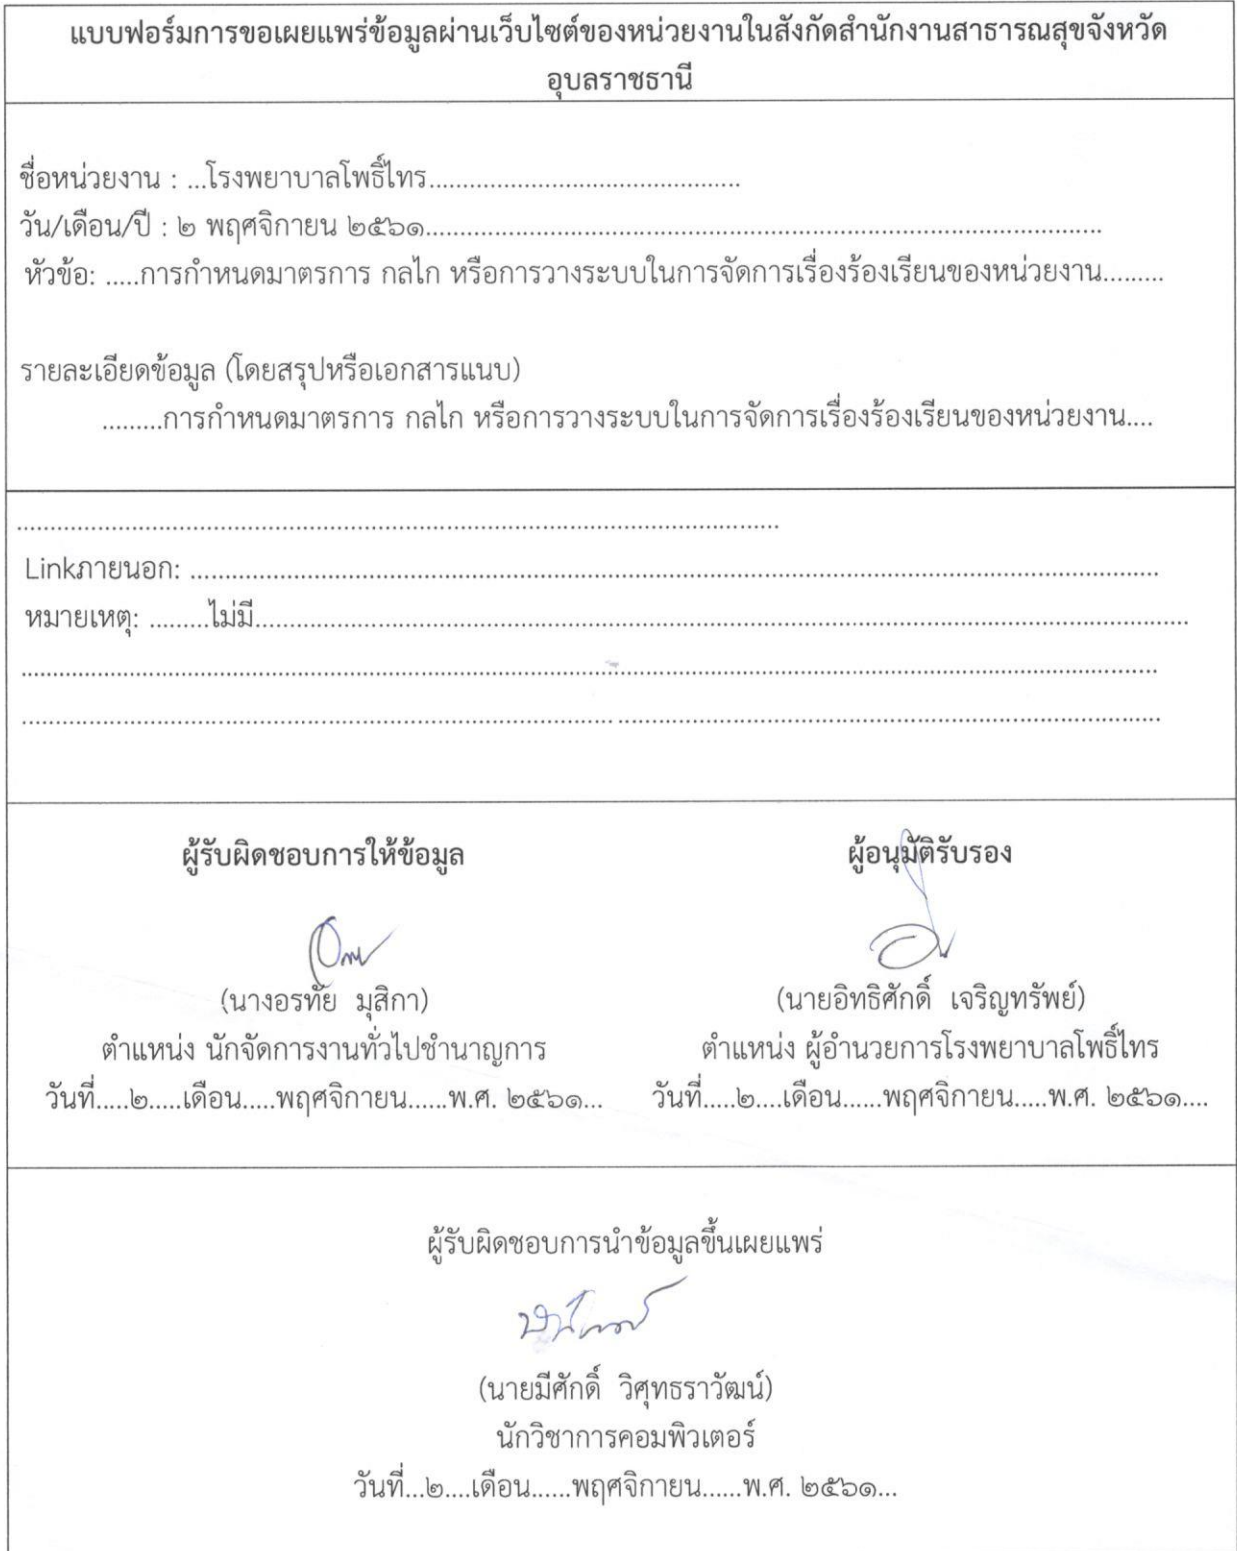 แบบฟอร์มการขอเผยแพร่ข้อมูลผ่านเว็บไซต์ของหน่วยงานในสังกัดสำนักงานสาธารณสุขจังหวัด
อุบลราชธานี
ชื่อหน่วยงาน : ...โรงพยาบาลโพธิ์ไทร..............................................
วัน/เดือน/ปี : ๒ พฤศจิกายน ๒๕๖๑....................................................................................................
หัวข้อ: .....การกำหนดมาตรการ กลไก หรือการวางระบบในการจัดการเรื่องร้องเรียนของหน่วยงาน.........
รายละเอียดข้อมูล (โดยสรุปหรือเอกสารแนบ)
.........การกำหนดมาตรการ กลไก หรือการวางระบบในการจัดการเรื่องร้องเรียนของหน่วยงาน....
Linkภายนอก: ....................................................................................................
หมายเหตุ: .........ไม่มี....................................................................................................
ผู้รับผิดชอบการให้ข้อมูล ผู้อนุมัติรับรอง
(นางอรทัย มุสิกา) (นายอิทธิศักดิ์ เจริญทรัพย์)
ตำแหน่ง นักจัดการงานทั่วไปชำนาญการ ตำแหน่ง ผู้อำนวยการโรงพยาบาลโพธิ์ไทร
วันที่.....๒.....เดือน.....พฤศจิกายน......พ.ศ. ๒๕๖๑... วันที่.....๒....เดือน......พฤศจิกายน.....พ.ศ. ๒๕๖๑....
ผู้รับผิดชอบการนำข้อมูลขึ้นเผยแพร่
(นายมีศักดิ์ วิศุทธราวัฒน์)
นักวิชาการคอมพิวเตอร์
วันที่...๒....เดือน......พฤศจิกายน......พ.ศ. ๒๕๖๑...